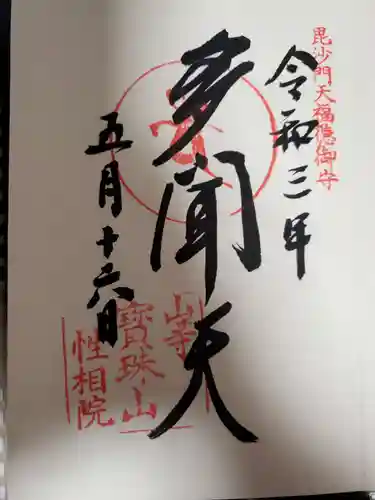 毘沙門天福隠御守
令和三年
多聞天
五月十六日
山寺
寳珠山
性相院